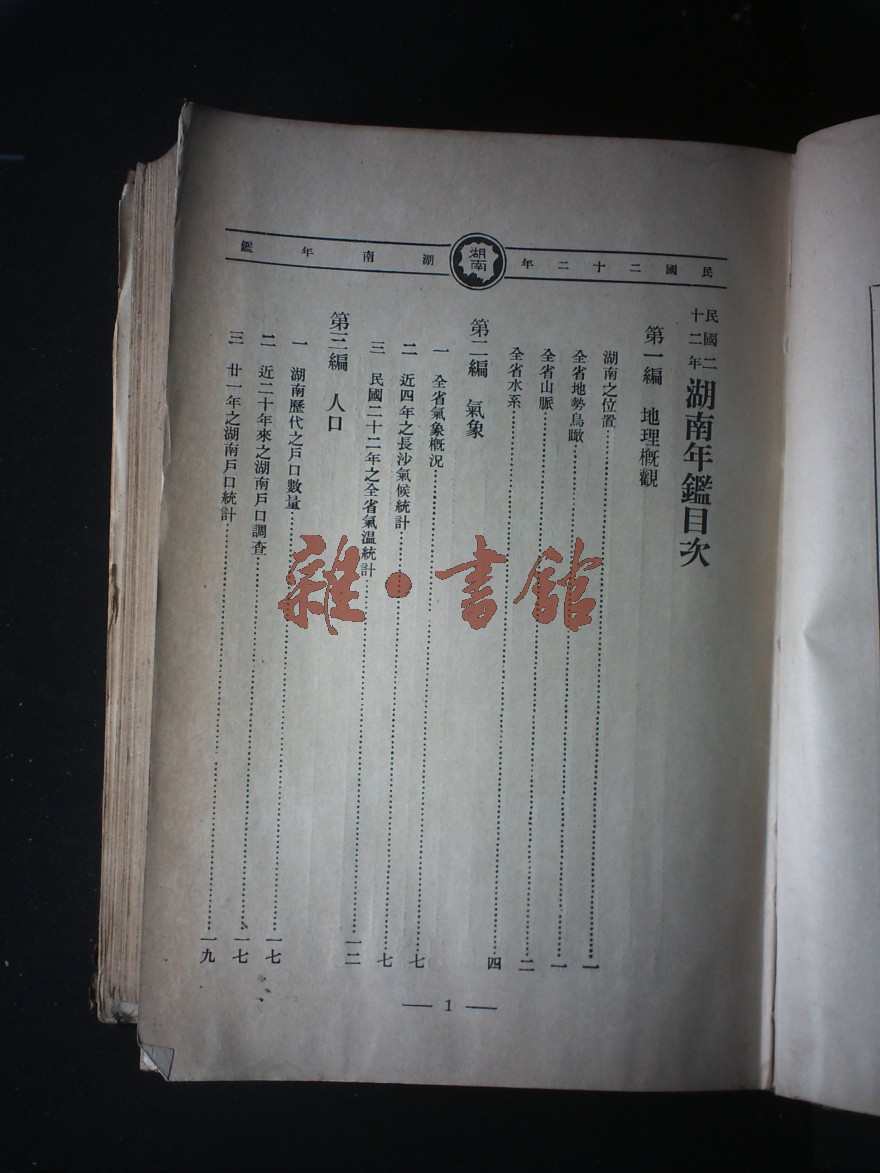 民國二十二年 湖南 湖南年鑑
民國二十二年 湖南年鑑目次
第一編 地理概觀
湖南之位置……一
全省地勢鳥瞰……一
全省山脈……二
全省水系……四
第二編 氣象
一 全省氣象概況……七
二 近四年之長沙氣候統計……七
三 民國二十二年之全省氣溫統計……一二
第三編 人口
一 湖南歷代之戶口數量……一七
二 近二十年來之湖南戶口調查……一七
三 廿一年之湖南戶口統計……一九
— 1 —
雜·書館